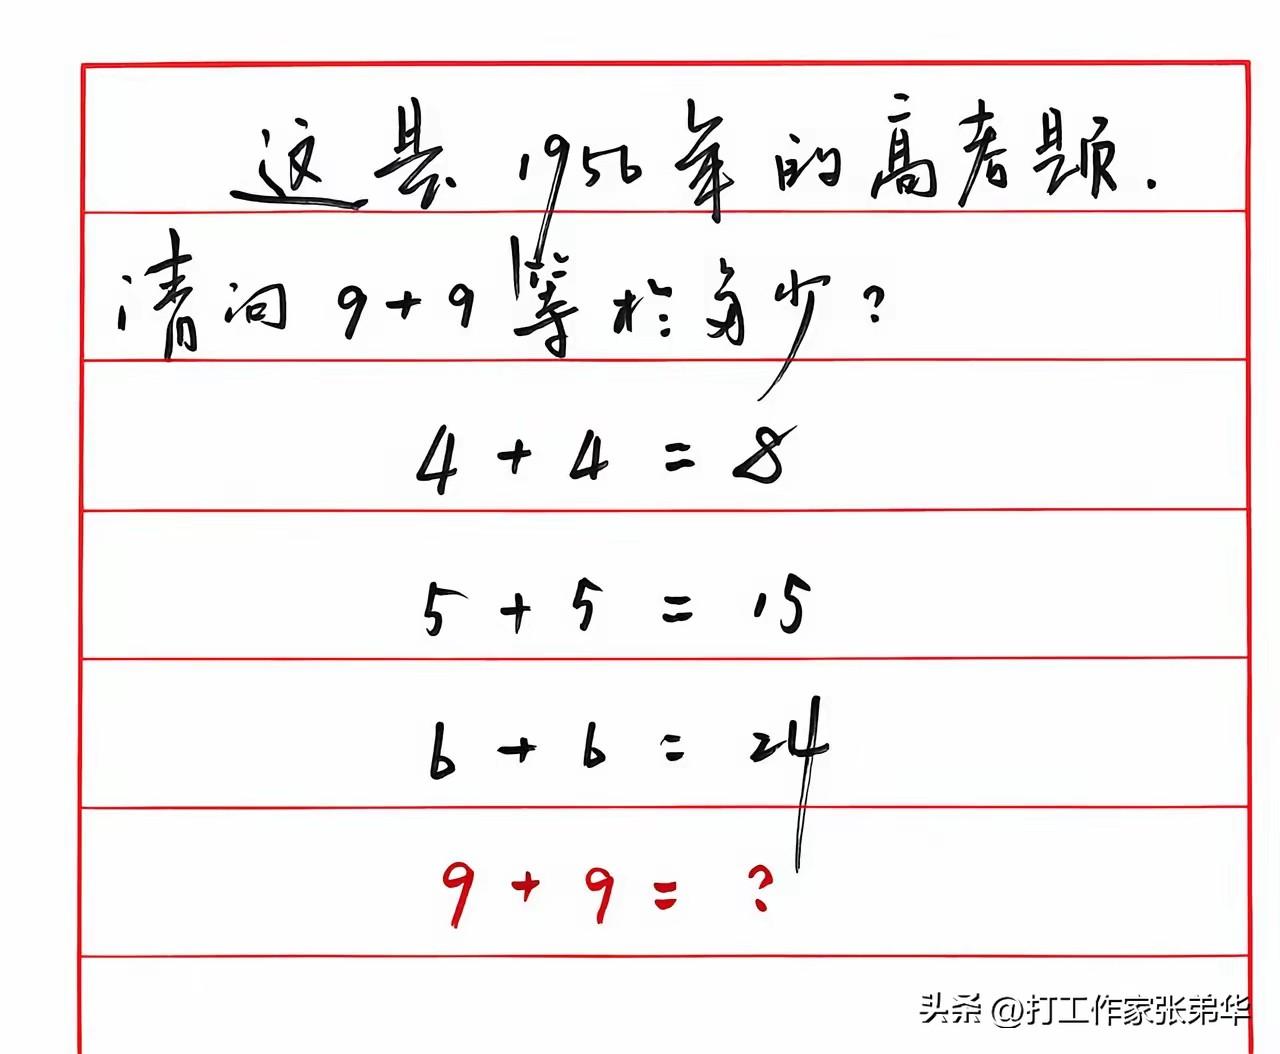 这是1956年的高考题.
请问9+9等于多少?
4+4=8
5+5=15
6+6=24
9+9=?
头条@打工作家张弟华